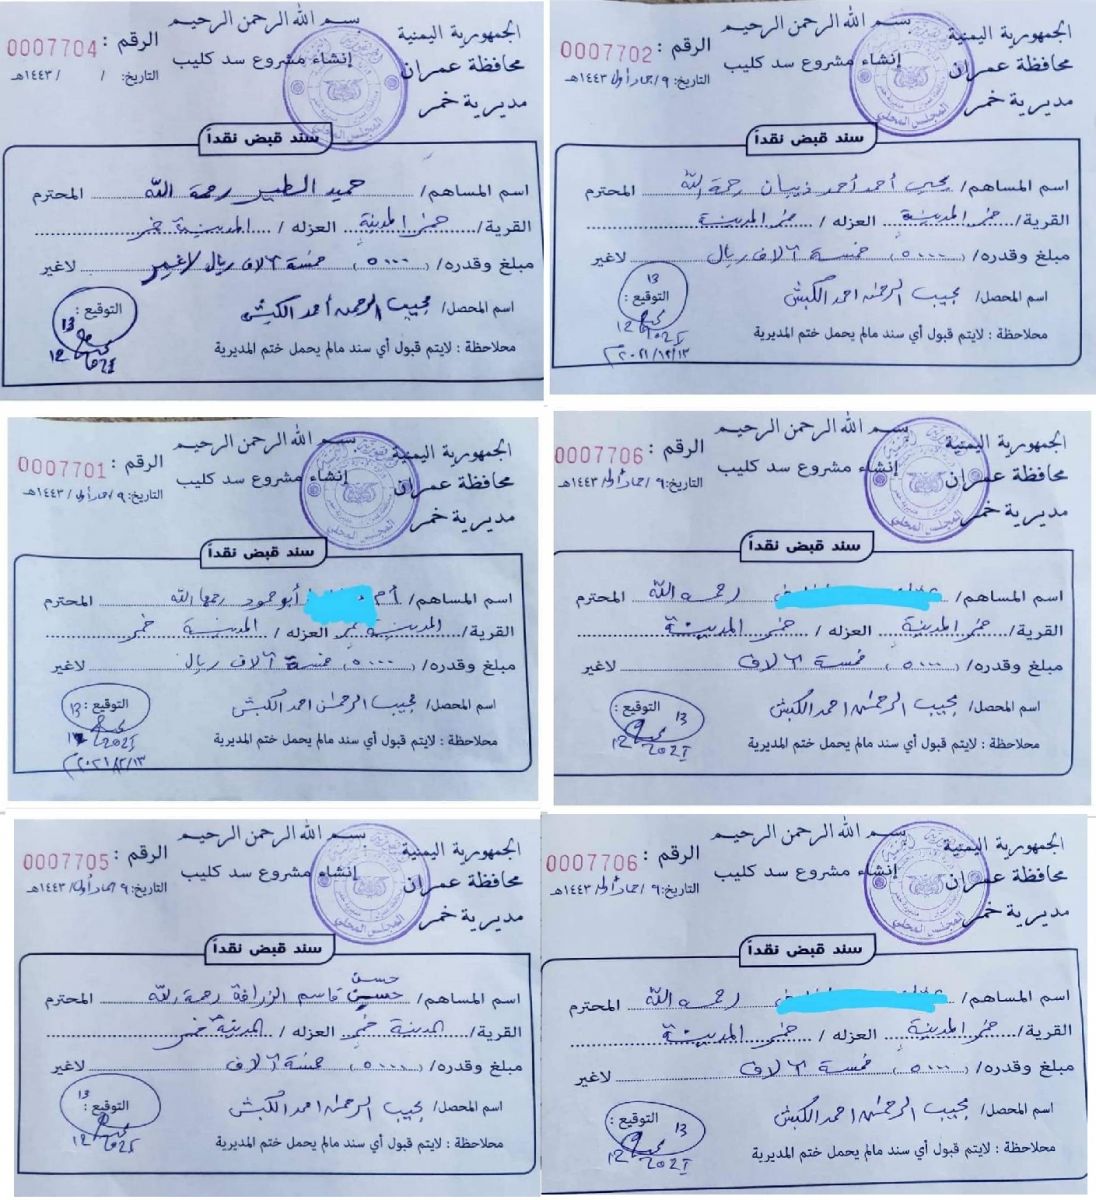 بسم الله الرحمن الرحيم
الجمهورية اليمنية
الرقم : 0007704
إنشاء مشروع سد كليب
محافظة عمران
التاريخ: / / ١٤٤٣هـ
مديرية خمر
سند قبض نقداً
اسم المساهم/ حميد الطير رحمة الله المحترم
القرية/ خمر المدينة العزله / المدينة خمر
مبلغ وقدره/ (٥٠٠٠) خمسة آلاف ريال لاغير لاغير
اسم المحصل/ مجيب الرحمن أحمد الكبش
التوقيع :
13
12
2021
ملاحظة : لايتم قبول أي سند مالم يحمل ختم المديرية
بسم الله الرحمن الرحيم
الجمهورية اليمنية
الرقم : 0007702
إنشاء مشروع سد كليب
محافظة عمران
التاريخ: ٩ /جماد أول/ ١٤٤٣هـ
مديرية خمر
المجلس المحلي
سند قبض نقداً
اسم المساهم/ يحيى أحمد أحمد ذيبان رحمة الله المحترم
القرية/ خمر المدينة العزله / خمر المدينة
مبلغ وقدره/ (٥٠٠٠) خمسة آلاف ريال لاغير
اسم المحصل/ مجيب الرحمن احمد الكبش
التوقيع :
13
12
2021
ملاحظة : لايتم قبول أي سند مالم يحمل ختم المديرية
٢٠٢١/١٢/١٣م
بسم الله الرحمن الرحيم
الجمهورية اليمنية
الرقم : 0007701
إنشاء مشروع سد كليب
محافظة عمران
التاريخ: ٩ /جماد أول/ ١٤٤٣هـ
مديرية خمر
المجلس المحلي
سند قبض نقداً
اسم المساهم/ أبو حمود رحمها الله المحترم
القرية/ المدينة خمر العزله / المدينة خمر
مبلغ وقدره/ (٥٠٠٠) خمسة آلاف ريال لاغير
اسم المحصل/ مجيب الرحمن احمد الكبش
التوقيع :
13
12
2021
ملاحظة : لايتم قبول أي سند مالم يحمل ختم المديرية
بسم الله الرحمن الرحيم
الجمهورية اليمنية
الرقم : 0007706
إنشاء مشروع سد كليب
محافظة عمران
التاريخ: ٩ /جماد أول/ ١٤٤٣هـ
مديرية خمر
المجلس المحلي
سند قبض نقداً
اسم المساهم/ رحمه الله المحترم
القرية/ خمر المدينة العزله / خمر المدينة
مبلغ وقدره/ (٥٠٠٠) خمسة آلاف لاغير
اسم المحصل/ مجيب الرحمن احمد الكبش
التوقيع :
13
12
2021
ملاحظة : لايتم قبول أي سند مالم يحمل ختم المديرية
بسم الله الرحمن الرحيم
الجمهورية اليمنية
الرقم : 0007705
إنشاء مشروع سد كليب
محافظة عمران
التاريخ: ٩ جماد أول/ ١٤٤٣هـ
مديرية خمر
المجلس المحلي
سند قبض نقداً
حسن
اسم المساهم/ حسين قاسم الزرافة رحمة الله المحترم
القرية/ المدينة خمر العزله / المدينة خمر
مبلغ وقدره/ (٥٠٠٠) خمسة آلاف لاغير
اسم المحصل/ مجيب الرحمن احمد الكبش
التوقيع :
13
12
2021
ملاحظة : لايتم قبول أي سند مالم يحمل ختم المديرية
بسم الله الرحمن الرحيم
الجمهورية اليمنية
الرقم : 0007706
إنشاء مشروع سد كليب
محافظة عمران
التاريخ: ٩ /جماد أول/ ١٤٤٣هـ
مديرية خمر
المجلس المحلي
سند قبض نقداً
اسم المساهم/ رحمه الله المحترم
القرية/ خمر المدينة العزله / خمر المدينة
مبلغ وقدره/ (٥٠٠٠) خمسة آلاف لاغير
اسم المحصل/ مجيب الرحمن احمد الكبش
التوقيع :
13
12
2021
ملاحظة : لايتم قبول أي سند مالم يحمل ختم المديرية